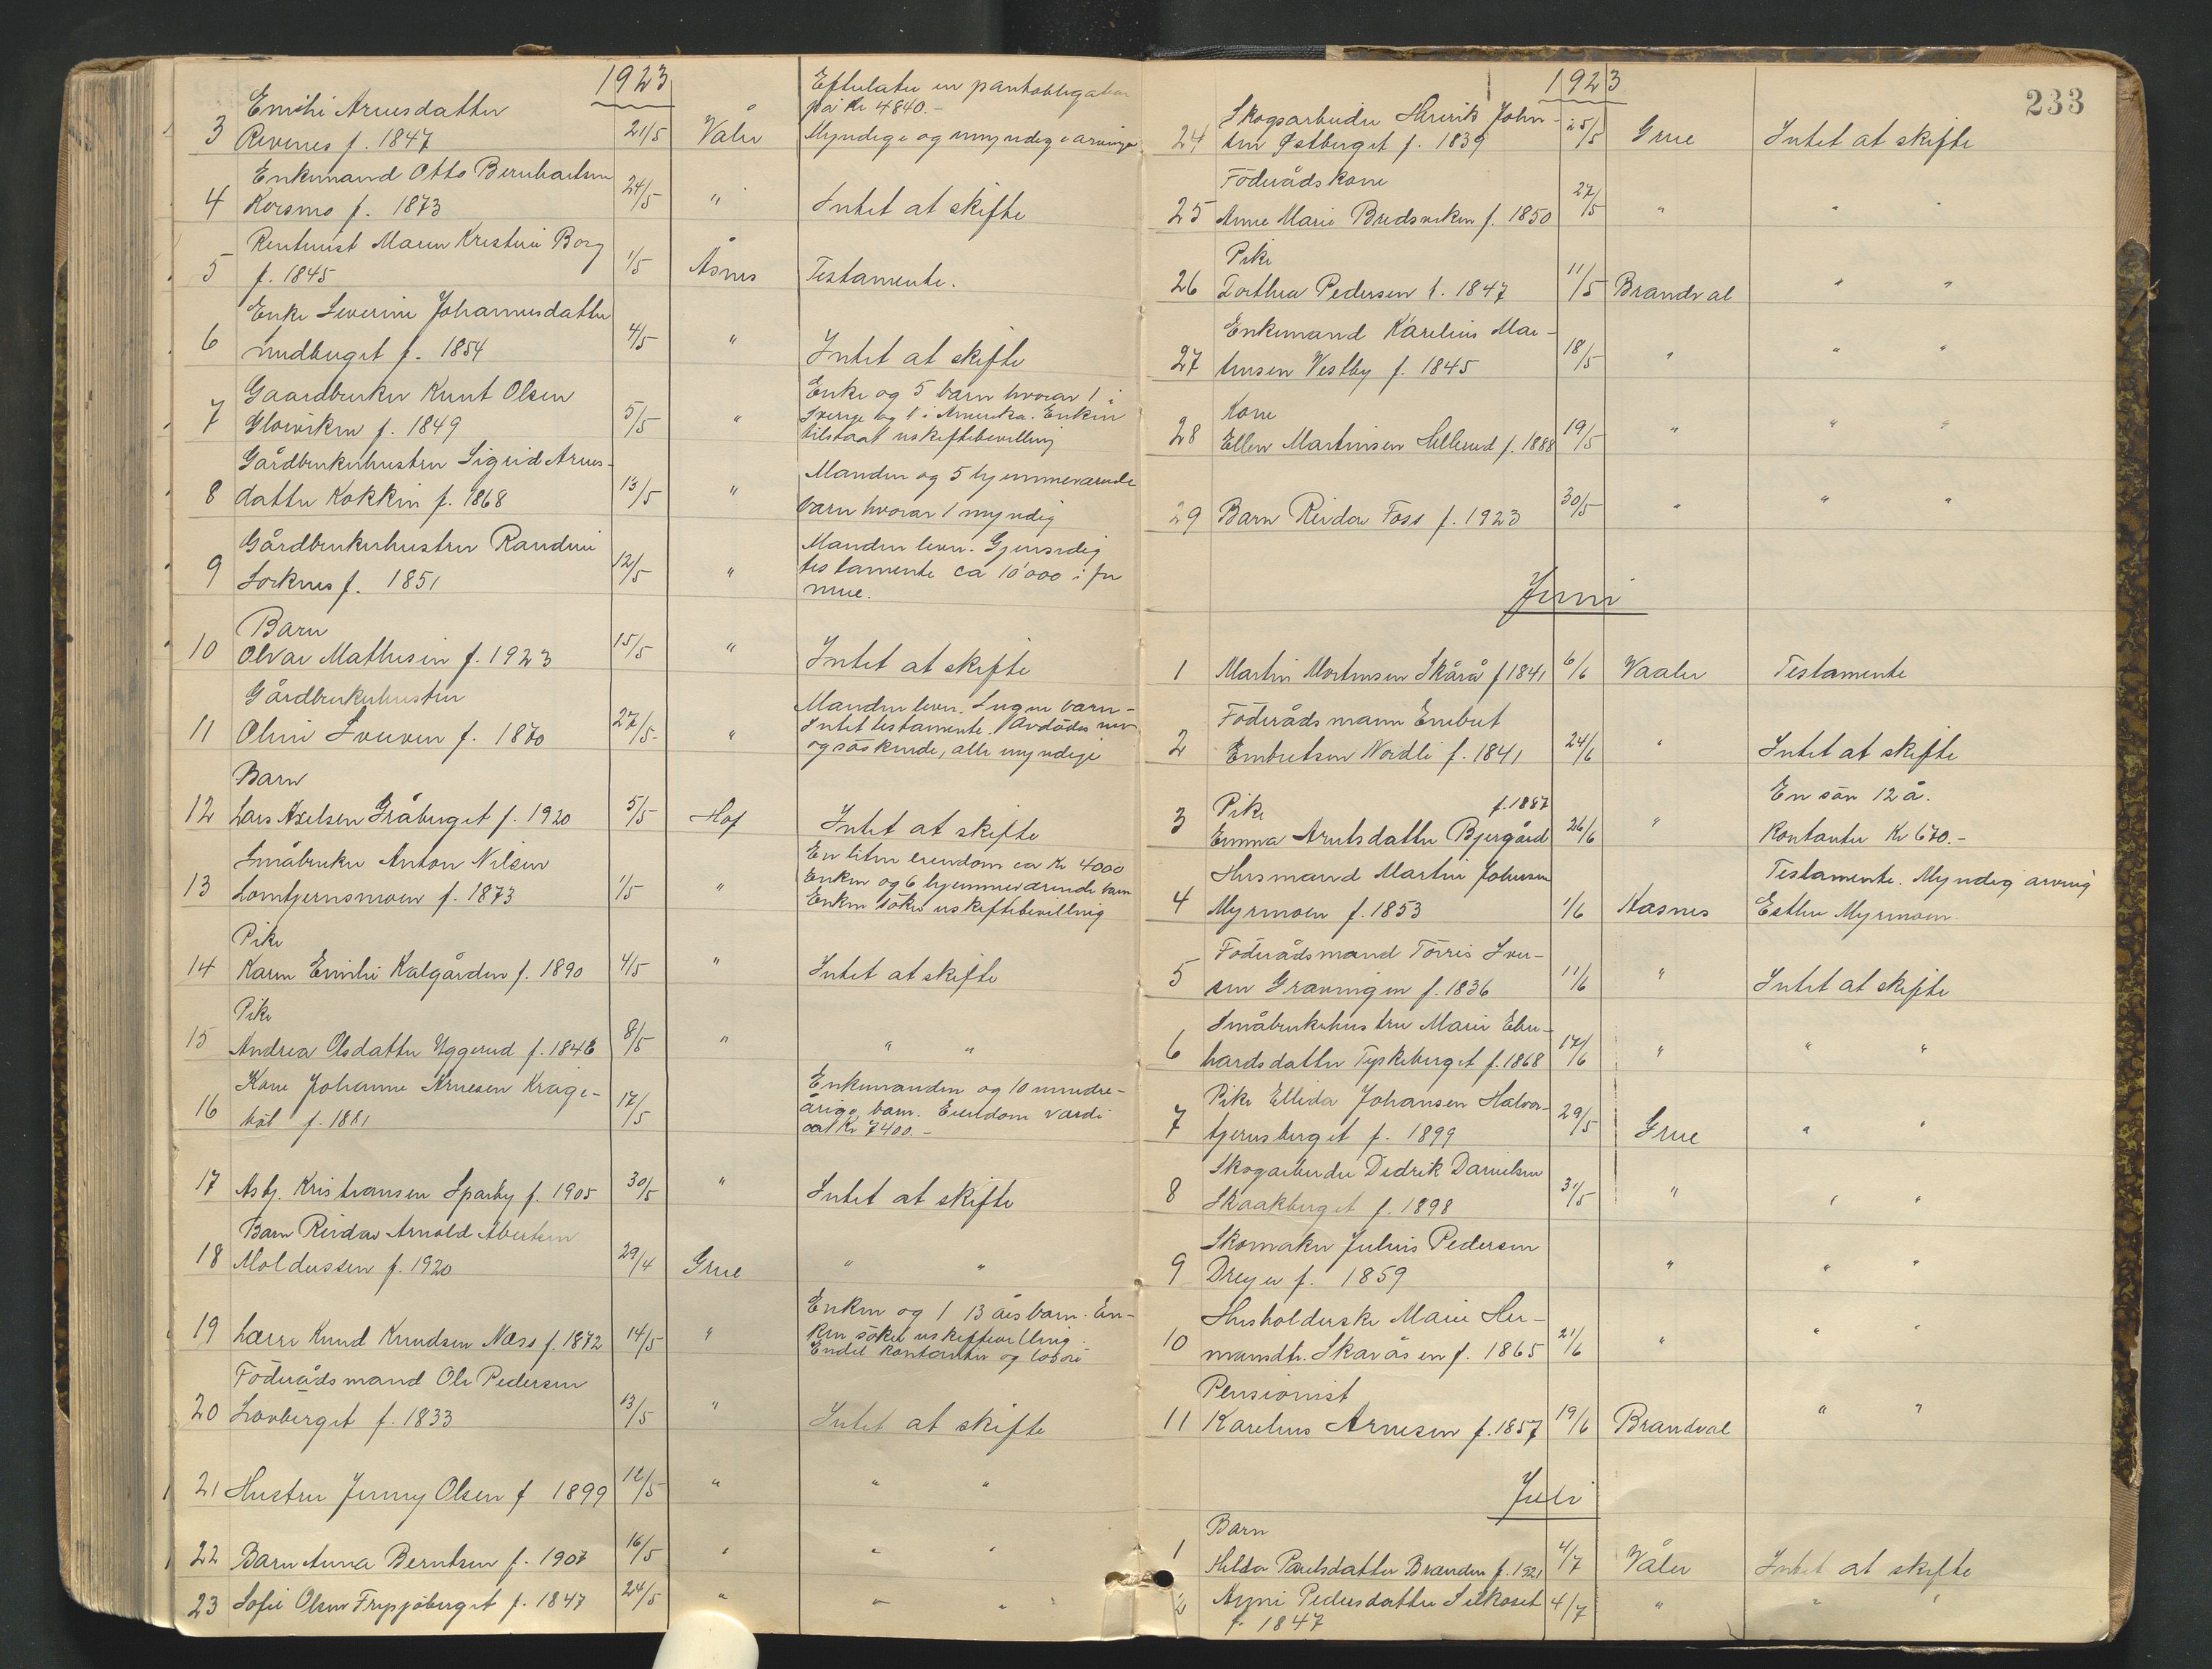 1923
Emilie Arnesdatter
3 Revenes f. 1847 21/5 Våler
Efterlater en pantobligation
på kr 4840.-
Myndige og umyndige arvinger
Enkemand Otto Bernhardsen
4 Korsmo f. 1873 24/5 " Intet at skifte
Rentenist Maren Kristine Borg
5 f. 1845 1/5 Åsnes Testamente.
Enke Severine Johannesdatter
6 f. 1854 4/5 " Intet at skifte
Gaardbruker Knut Olsen
7 f. 1849 5/5 "
Enke og 5 barn hvorav 1 i
Sverge og 1 i Amerika. Enken
tilstaat uskiftebevilling
Gårdbrukerhustru Sigrid Arnes-
8 datter Kokkin f. 1868 13/5 "
Manden og 5 hjemmeværende
barn hvorav 1 myndig
Gårdbrukerhustru Randine
9 Sorknes f. 1851 12/5 "
Manden lever. Gjensidig
testamente ca 10'000 i for
mue.
Barn
10 Olvar Mathisen f. 1923 15/5 " Intet at skifte
Gårdbrukerhustru
11 Oline f. 1870 27/5 "
Manden lever. Ingen barn-
Intet testamente. Avdødes mor
og søskende, alle myndige
Barn
12 Lars Axelsen Gråberget f. 1920 5/5 Hof Intet at skifte
Småbruker Anton Nilsen
13 Lomtjernsmoen f. 1873 1/5 "
En liten eiendom ca kr 4000
Enken og 6 hjemmeværende barn
Enken søker uskiftebevilling
Pike
14 Karen Emilie Kalgården f. 1890 4/5 " Intet at skifte
Pike
15 Andrea Olsdatter Uggerud f. 1846 8/5 " " "
Kone Johanne Arnesen Krage-
16 f. 1881 17/5
Enkemanden og 10 mindre-
årige barn. Eiendom værdi
kr 7400.-
17 Asbj. Kristiansen Sparby f. 1905 30/5 " Intet at skifte
Barn Reidar Arnold Albertsen
18 Moldussen f. 1920 29/4 Grue " "
19 Lærer Knud Knudsen Næss f. 1872 14/5 "
Enken og 1 13 års barn. En-
ken søker uskiftevilling.
Endel kontanter og løsøre
Föderådsmand Ole Pedersen
20 Lovberget f. 1833 13/5 " Intet at skifte
21 Hustru Jenny Olsen f 1899 12/5 " " "
22 Barn Anna Berntsen f. 1907 16/5 " " "
23 Sofie Olsen f. 1847 24/5 " " "
1923
233
Skogsarbeider Henrik Johan-
24 sen Østberget f. 1839 25/5 Grue Intet at skifte
Föderådskone
25 Anne Marie Bredsviken f. 1850 27/5 " " "
Pike
26 Dorthea Pedersen f. 1847 11/5 Brandval " "
Enkemand Karelius Mar-
27 tinsen Vestby f. 1845 18/5 " " "
Kone
28 Ellen Martinsen Sellerud f. 1888 19/5 " " "
29 Barn Reidar Foss f. 1923 30/5 " " "
Juni
1 Martin Mortensen Skårå f 1841 6/6 Vaaler Testamente
Föderådsmann Embret
2 Embretsen Nordli f. 1841 24/6 " Intet at skifte
Pike f. 1887
3 Emma Arntsdatter Bjergård 26/6 "
En sön 12 å.
Kontanter Kr 670.-
Husmand Martin Johnsen
4 Myrmoen f. 1853 1/6 Aasnes
Testamente. Myndig arving
Esther Myrmoen
Föderådsmand Törris Iver-
5 sen Gravingen f. 1836 11/6 " Intet at skifte
Småbrukerhustru Marie Eber-
6 hardsdatter Tyskeberget f. 1868 17/6 " " "
Pike Ellida Johansen Halvor-
7 tjernsberget f. 1899 29/5 Grue " "
Skogarbeider Didrik Danielsen
8 Skaakberget f. 1898 31/5 " " "
Skomaker Julius Pedersen
9 Dreyer f. 1859 " " "
Husholderske Marie Her-
10 mansdtr. Skaråsen f. 1865 21/6 " " "
Pensionist
11 Karelius Arnesen f. 1857 19/6 Brandval " "
Juli
Barn
1 Hilda Paulsdatter Brænden f. 1921 4/7 Våler Intet at skifte
2 Agni Pedersdatter Silkoset 4/7 " " "
f. 1847